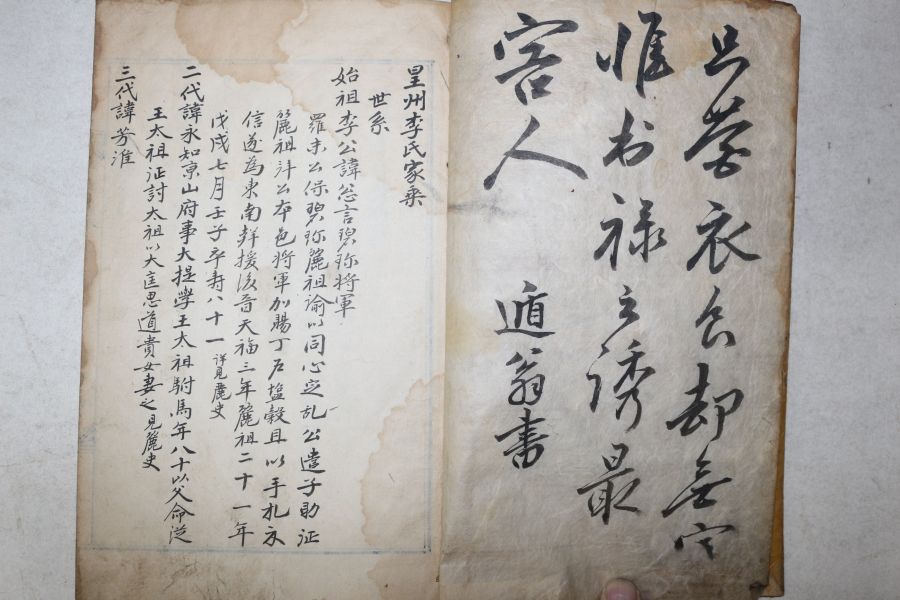 只營衣食却無害
惟有祿之誘最
害人 遁翁書
星州李氏家乘
世系
始祖李公諱忩言碧珎將軍
羅末公保碧珎麗祖諭以同心定乱公遣子助征
麗祖斗公本邑將軍加賜丁户塩穀且以手札示
信遂為東南群援後晉天福三年麗祖二十一年
戊戌七月壬子卒壽八十一 詳見麗史
二代諱永知京山府事大提學王太祖駙馬年八十以父命從
王太祖征討太祖以大匡思道貴女妻之見麗史
三代諱芳淮